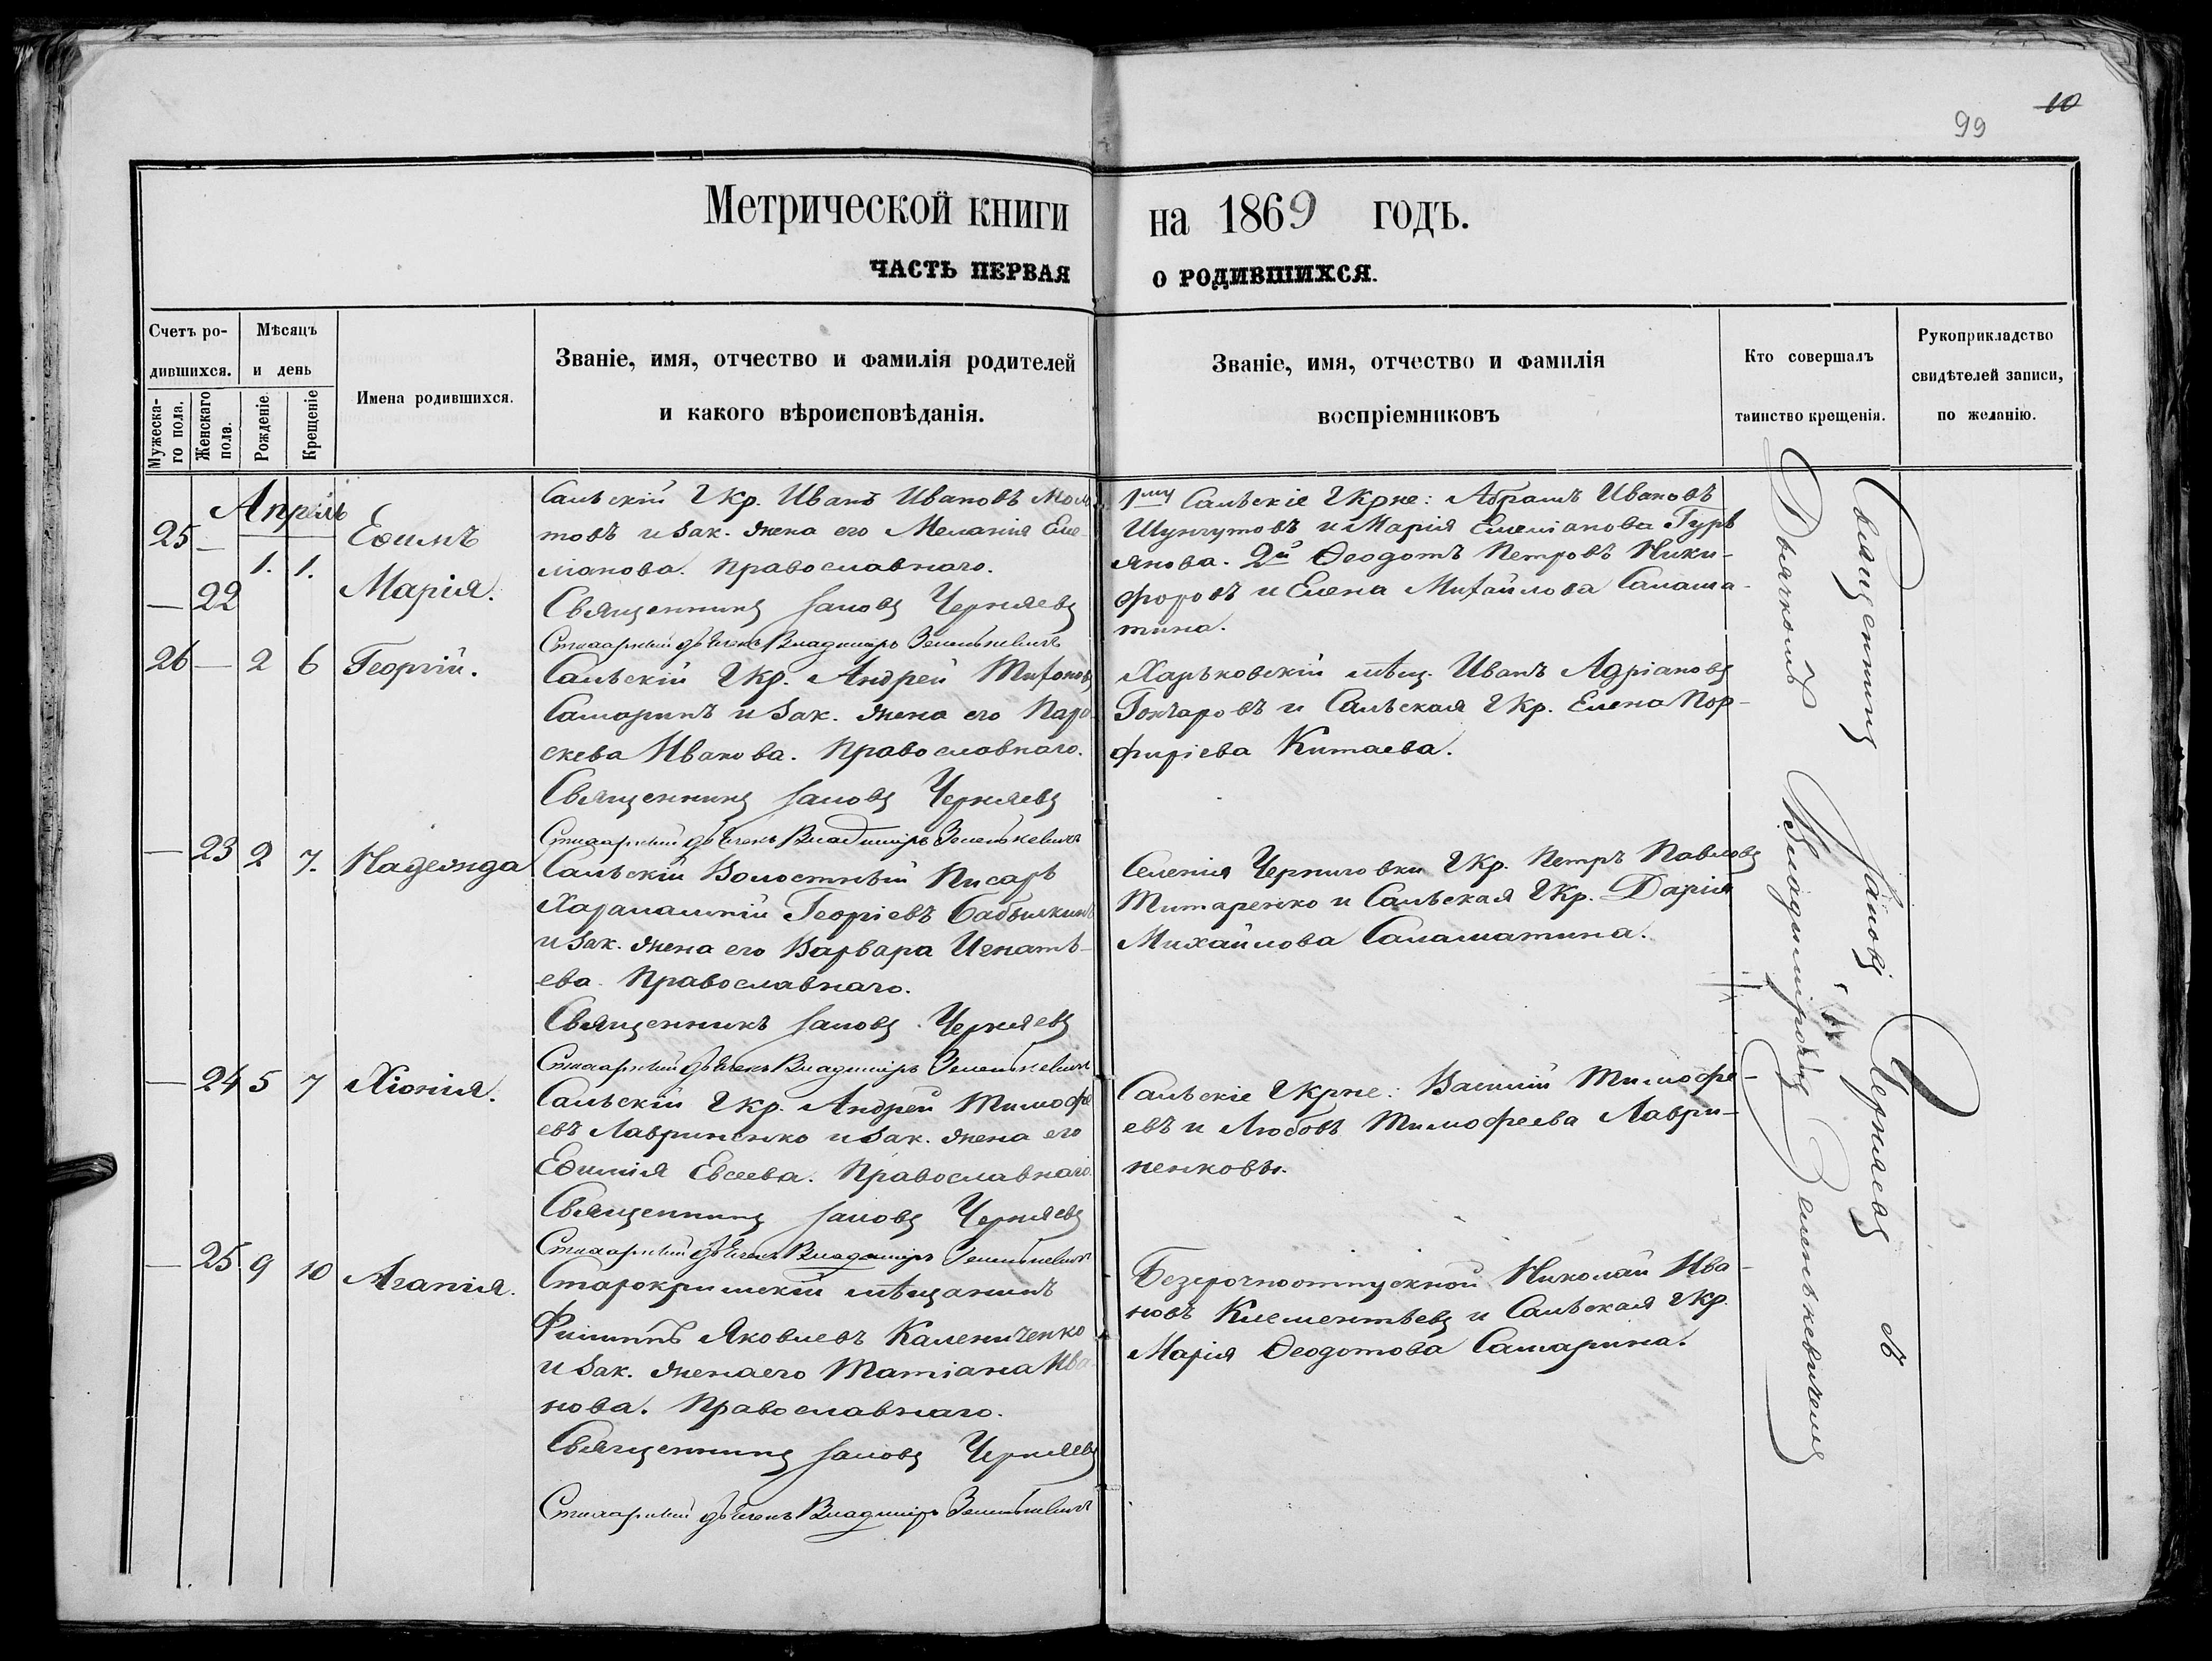 10
99
Метрической книги на 1869 годъ.
ЧАСТЬ ПЕРВАЯ О РОДИВШИХСЯ.
Счетъ родившихся.
Мужескаго пола.
Женскаго пола.
Мѣсяцъ и день
Рожденіе.
Крещеніе
Имена родившихся.
Званіе, имя, отчество и фамилія родителей
и какого вѣроисповѣданія.
Званіе, имя, отчество и фамилія
воспріемниковъ
Кто совершалъ
таинство крещенія.
Рукоприкладство
свидѣтелей записи,
по желанію.
Апрѣль
25 —
1. 1.
Еѳимъ
— 22
Марія.
Сальскій Гкр. Иванъ Ивановъ
товъ и зак. жена его Меланія Еме-
ліанова. Православнаго.
Священникъ Іаковъ Черняевъ
Стихарный дьячекъ Владиміръ Зеленькевичъ
1му Сальскіе Гкрне: Абрамъ Ивановъ
Шунгутовъ и Марія Емеліанова Гурь
янова. 2й Ѳеодотъ Петровъ Ники-
форовъ и Елена Михайлова Саламa-
тина.
26 — 2 6 Георгій.
Сальскій Гкр. Андрей Тихоновъ
Самаринъ и зак. жена его Пара-
скева Иванова. Православнаго.
Священникъ Іаковъ Черняевъ
Стихарный дьячекъ Владиміръ Зеленькевичъ
Харьковскій мѣщ. Иванъ Адріановъ
Гончаровъ и Сальская Гкр. Елена Пор-
фиріева Китаева.
— 23 2 7. Надежда
Сальскій Волостный Писарь
Харалампій Георгіевъ Бабылкинъ
и зак. жена его Варвара Игнать-
ева. Православнаго.
Священникъ Іаковъ Черняевъ
Стихарный дьячекъ Владиміръ Зеленькевичъ
Селенія Черниговки Гкр. Петръ Павловъ
Титаренко и Сальская Гкр. Дарія
Михайлова Саламатина.
— 24 5 7 Хіонія.
Сальскій Гкр. Андрей Тимофе
евъ Лавриненко и зак. жена его
Еѳимія Евсеева. Православнаго.
Священникъ Іаковъ Черняевъ
Стихарный дьячекъ Владиміръ Зеленькевичъ
Сальскіе Гкрне: Василій Тимофе-
евъ и Любовь Тимофеева Лаври-
ненковы.
— 25 9 10 Агапія.
Старокримскій мѣщанинъ
Филиппъ Яковлевъ Калениченко
и зак. жена его Татіана Ива
нова. Православнаго.
Священникъ Іаковъ Черняевъ
Стихарный дьячекъ Владиміръ Зеленькевичъ
Безсрочноотпускной Николай Ива-
новъ Клементьевъ и Сальская Гкр.
Марія Ѳеодотова Самарина.
Священникъ Іаковъ Черняевъ съ
Дьячкомъ Владиміромъ Зеленькевичемъ